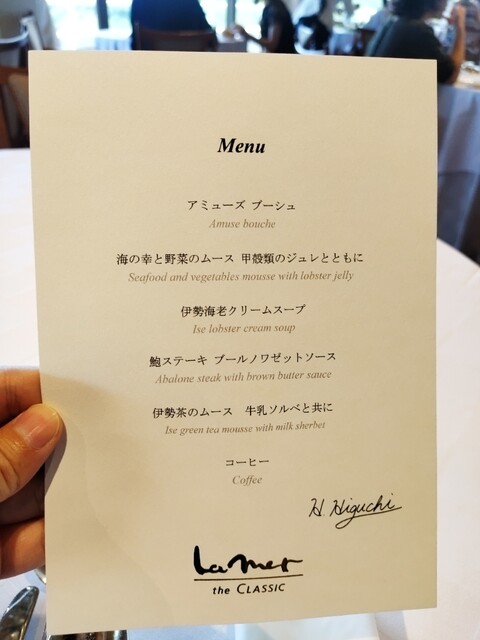 Menu
アミューズ ブーシュ
Amuse bouche
海の幸と野菜のムース 甲殻類のジュレとともに
Seafood and vegetables mousse with lobster jelly
伊勢海老クリームスープ
Ise lobster cream soup
鮑ステーキ ブールノワゼットソース
Abalone steak with brown butter sauce
伊勢茶のムース　牛乳ソルベと共に
Ise green tea mousse with milk sherbet
コーヒー
Coffee
H. Higuchi
La mer
the CLASSIC